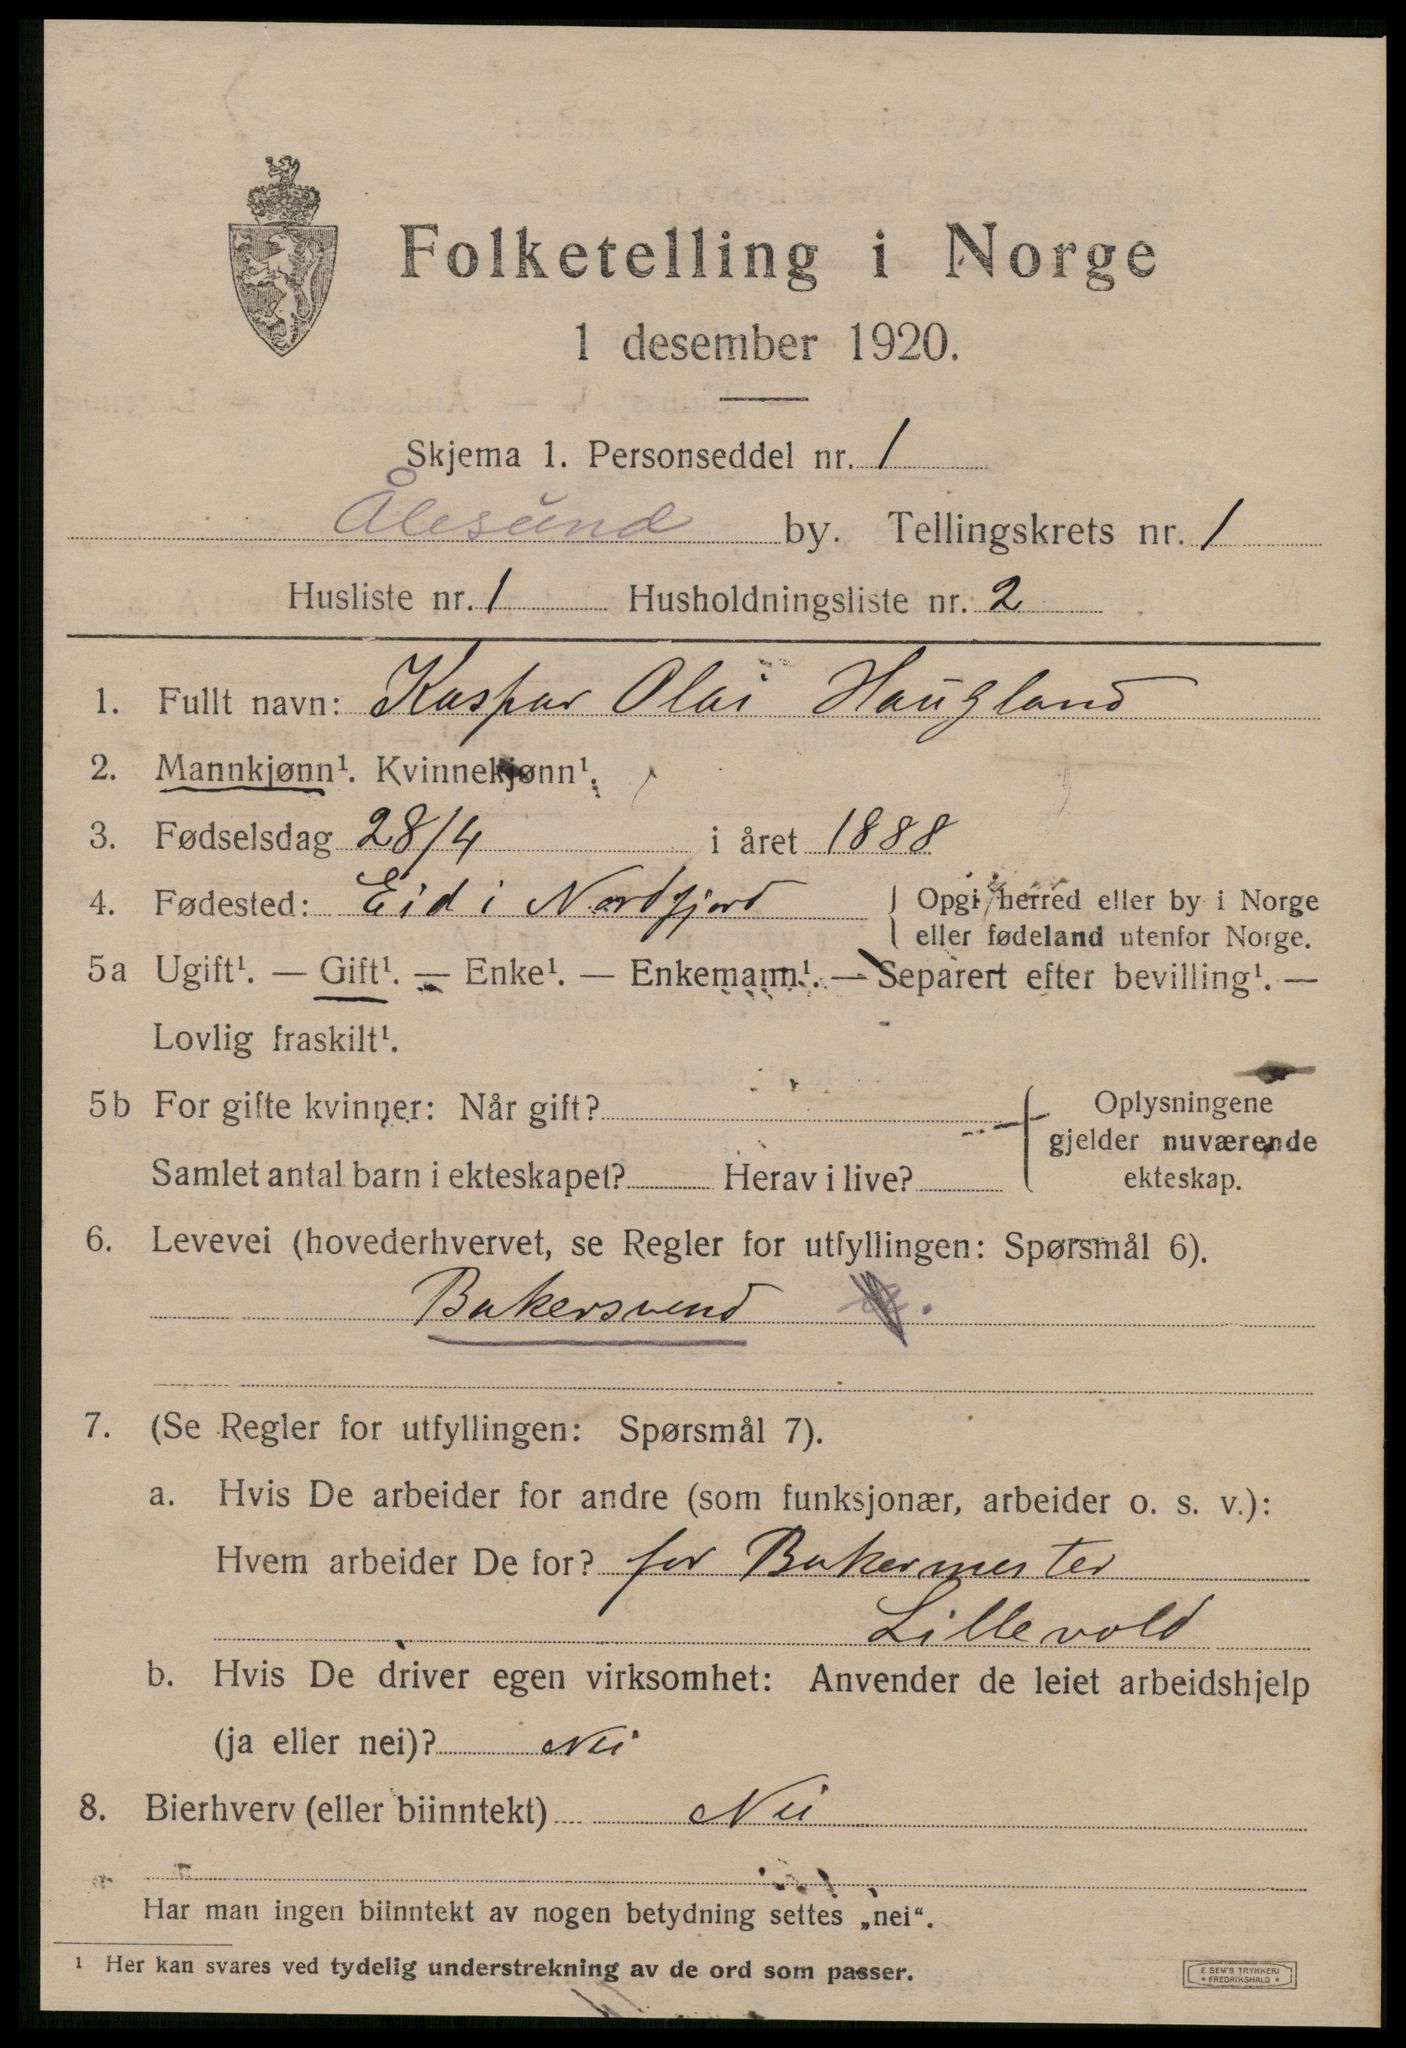 Folketelling i Norge
1 desember 1920.
Skjema 1. Personseddel nr. 1
Ålesund by. Tellingskrets nr. 1
Husliste nr. 1 Husholdningsliste nr. 2
1. Fullt navn: Kaspar Olai Haugland
2. Mannkjønn¹. Kvinnekjønn¹.
3. Fødselsdag 28/4 i året 1888
4. Fødested: Eid i Nordfjord { Opgi herred eller by i Norge
eller fødeland utenfor Norge.
5a Ugift¹. — Gift¹. — Enke¹. — Enkemann¹. — Separert efter bevilling¹. —
Lovlig fraskilt¹.
5b For gifte kvinner: Når gift? { Oplysningene
gjelder nuværende
Samlet antal barn i ekteskapet? Herav i live? ekteskap.
6. Levevei (hovederhvervet, se Regler for utfyllingen: Spørsmål 6).
Bakersvend
7. (Se Regler for utfyllingen: Spørsmål 7).
a. Hvis De arbeider for andre (som funksjonær, arbeider o. s. v.):
Hvem arbeider De for? for Bakermester
Lillevold
b. Hvis De driver egen virksomhet: Anvender de leiet arbeidshjelp
(ja eller nei)? Nei
8. Bierhverv (eller biinntekt) Nei
Har man ingen biinntekt av nogen betydning settes „nei“.
¹ Her kan svares ved tydelig understrekning av de ord som passer.
E. SEM'S TRYKKERI
* FREDRIKSHALD *